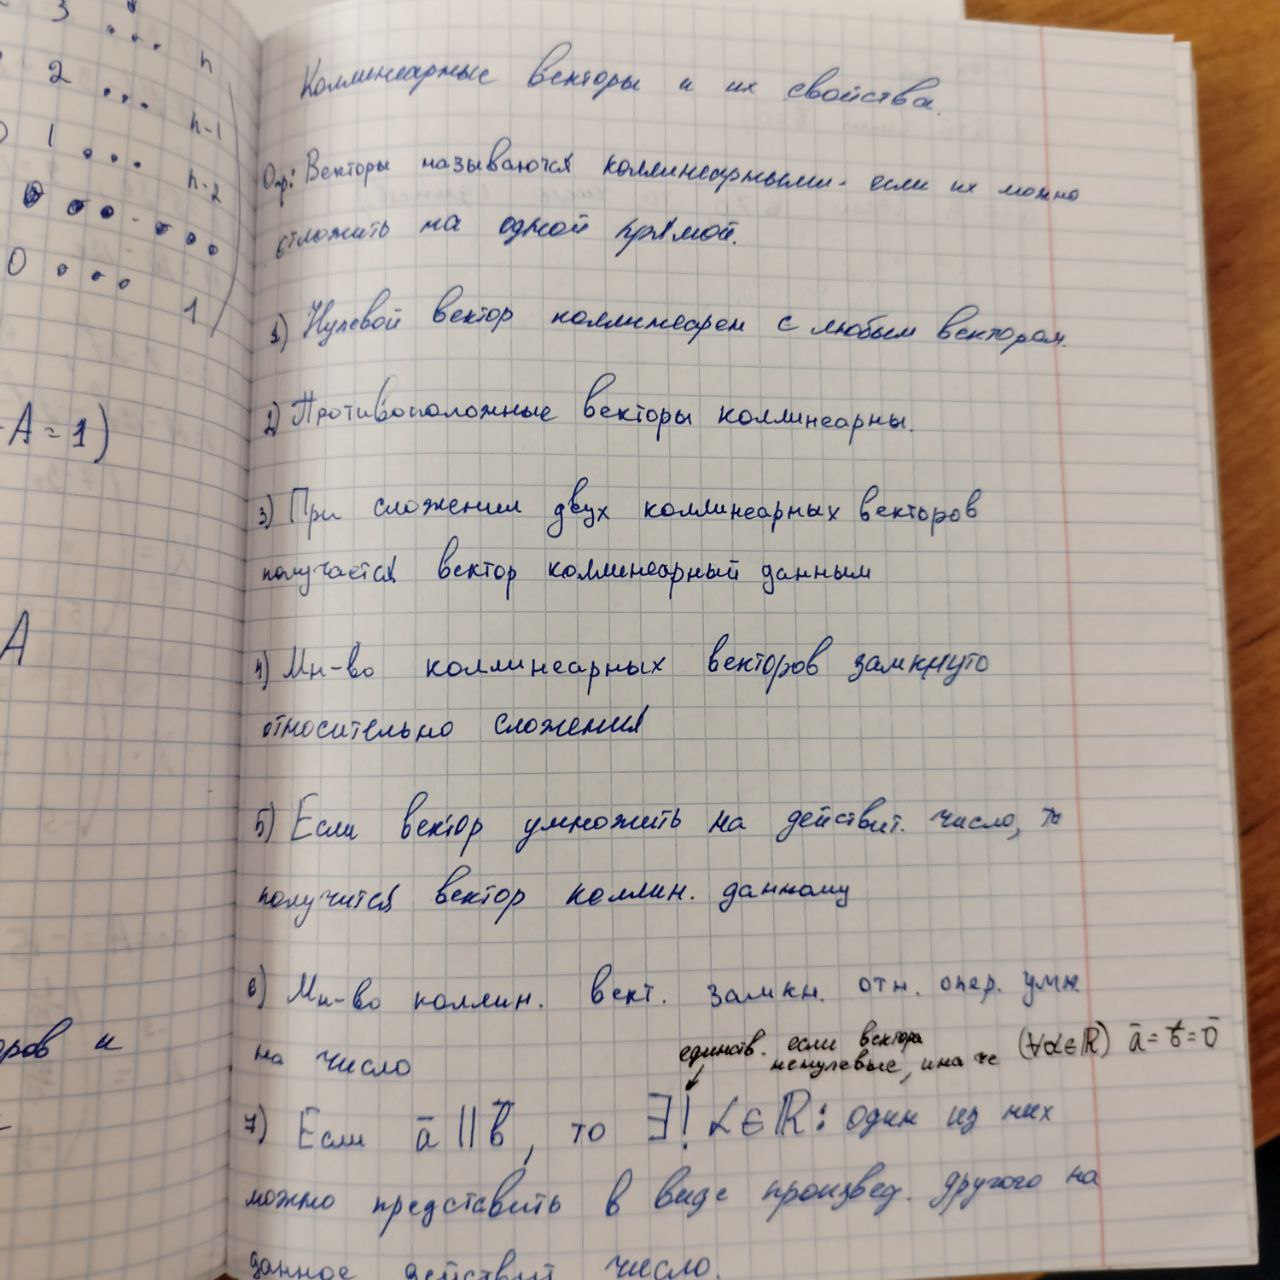 3 ... n
2 ... n-1
1 ... n-2
0 ... 1
-A = 1)
A
оров и
Коллинеарные векторы и их свойства.
Опр: Векторы называются коллинеарными. если их можно
отложить на одной прямой.
1) Нулевой вектор коллинеарен с любым вектором.
2) Противоположные векторы коллинеарны.
3) При сложении двух коллинеарных векторов
получается вектор коллинеарный данным
4) Мн-во коллинеарных векторов замкнуто
относительно сложения
5) Если вектор умножить на действит. число, то
получится вектор коллин. данному
6) Мн-во коллин. вект. замкн. отн. опер. умн
на число
единств. если вектора
ненулевые, иначе (∀α∈ℝ) a̅ = b̅ = 0̅
7) Если a̅ || b̅, то ∃! α∈ℝ: один из них
можно представить в виде произвед. другого на
данное действит число.